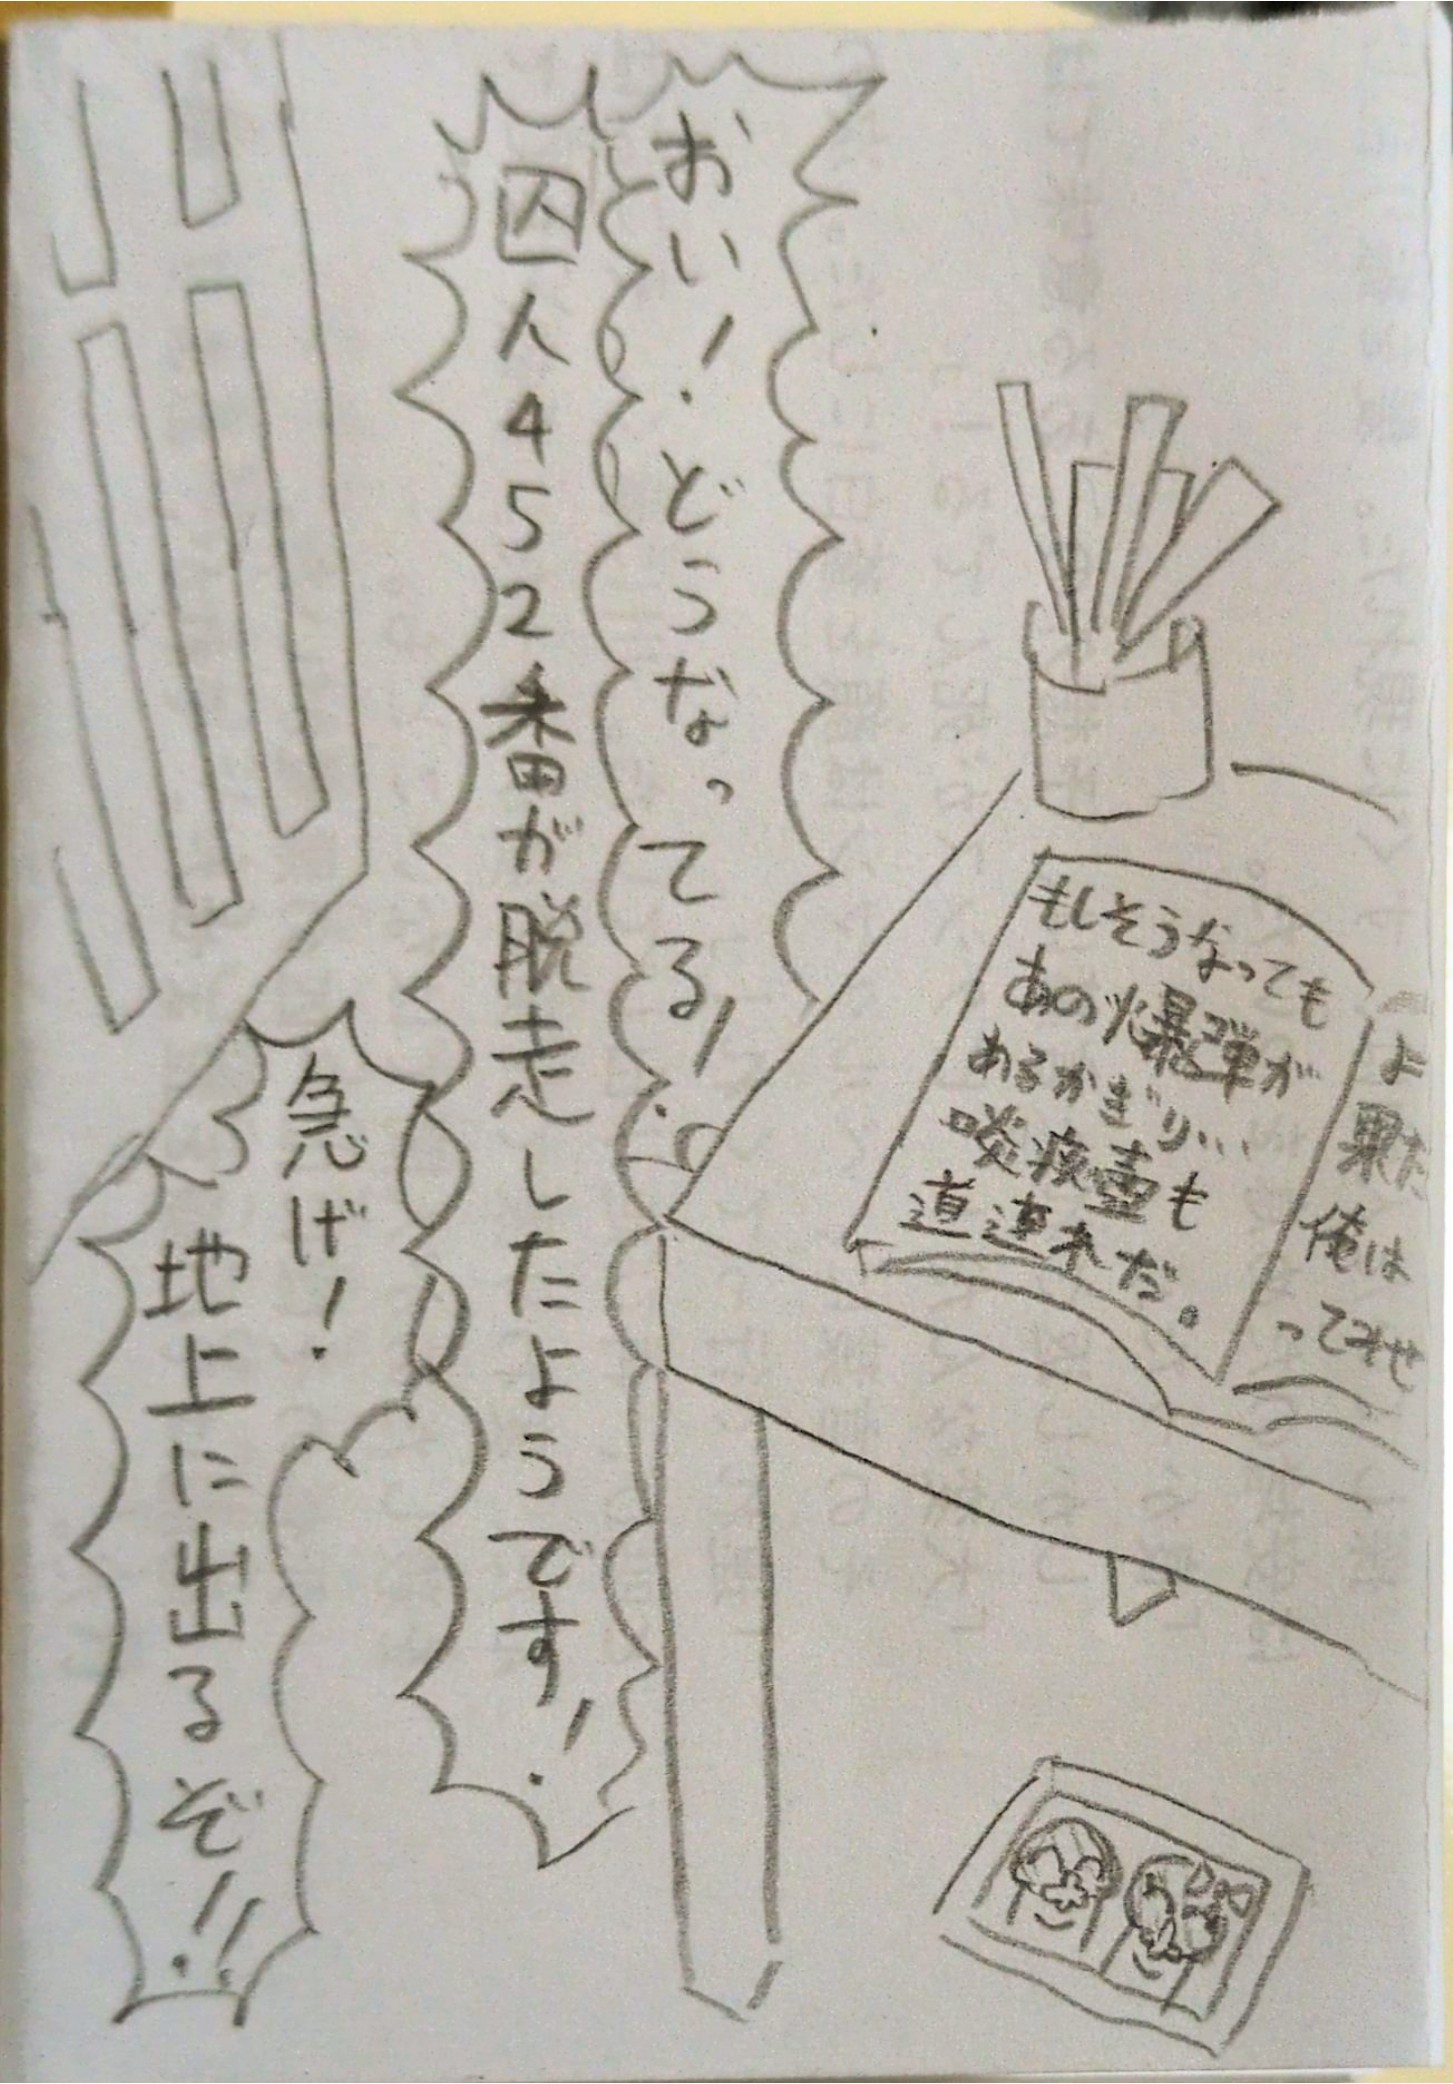 おい！どうなってる！
囚人452番が脱走したようです！
急げ！
地上に出るぞ!!
もしそうなっても
あの爆弾が
あるかぎり…
啖痰壷も
道連れだ。
よ
果た
俺は
ってみせ